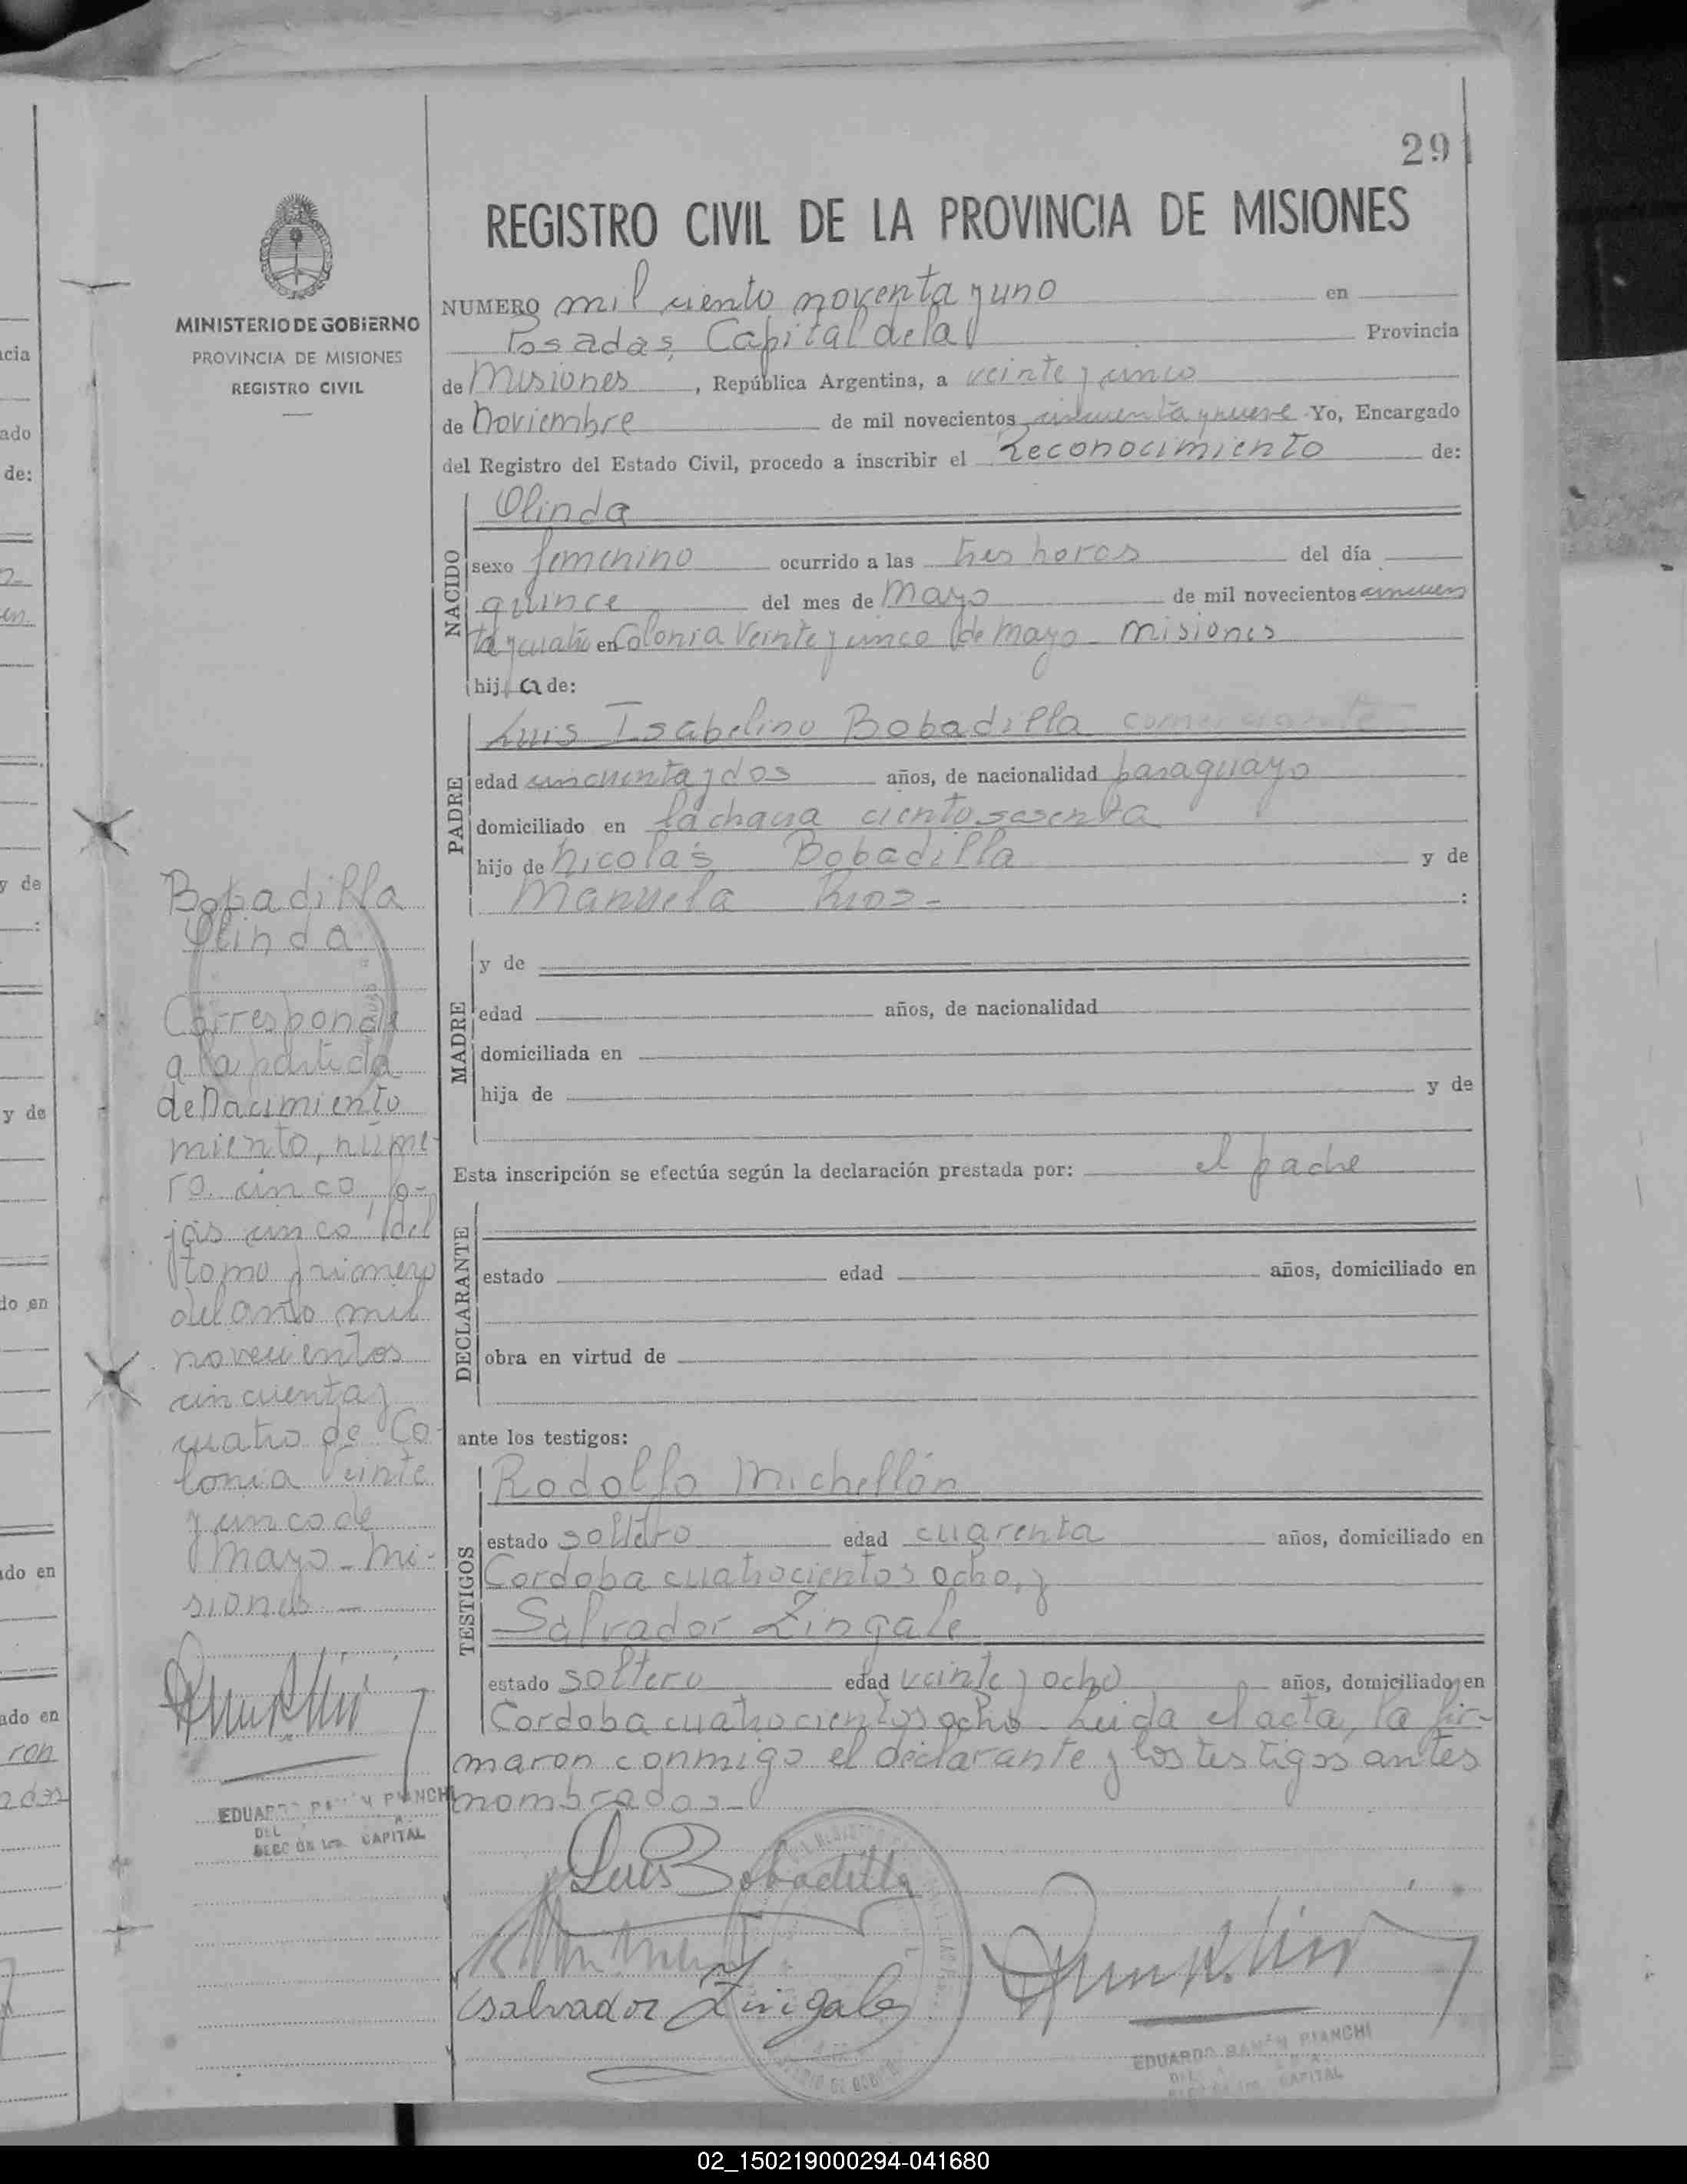 29
REGISTRO CIVIL DE LA PROVINCIA DE MISIONES
MINISTERIO DE GOBIERNO
PROVINCIA DE MISIONES
REGISTRO CIVIL
NUMERO mil ciento noventa y uno en
Posadas, Capital de la Provincia
de Misiones, República Argentina, a veinte y cinco
de noviembre de mil novecientos cincuenta y nueve Yo, Encargado
del Registro del Estado Civil, procedo a inscribir el Reconocimiento de:
NACIDO
Olinda
sexo femenino ocurrido a las tres horas del día
quince del mes de Mayo de mil novecientos cincuen
ta y cuatro en Colonia Veinte y cinco de Mayo - Misiones
hija de:
PADRE
Luis Isabelino Bobadilla comerciante
edad cincuenta y dos años, de nacionalidad paraguayo
domiciliado en la chacra ciento sesenta
hijo de Nicolás Bobadilla y de
Manuela Rios - :
MADRE
y de
edad años, de nacionalidad
domiciliada en
hija de y de
Esta inscripción se efectúa según la declaración prestada por: el padre
DECLARANTE
estado edad años, domiciliado en
obra en virtud de
ante los testigos:
TESTIGOS
Rodolfo Michellón
estado soltero edad cuarenta años, domiciliado en
Cordoba cuatrocientos ocho, y
Salvador Zingale
estado soltero edad veinte y ocho años, domiciliado en
Cordoba cuatrocientos ocho. Leida el acta, la fir-
maron conmigo el declarante y los testigos antes
nombrados -
Luis Bobadilla
Salvador Zingale
EDUARDO RAMÓN PIANCHI
CAPITAL
Bobadilla
Olinda
Corresponde
a la partida
de Nacimiento
miento, núme-
ro cinco fo-
jas cinco del
tomo primero
del año mil
novecientos
cincuenta y
cuatro de Co-
lonia Veinte
y cinco de
Mayo - Mi-
siones -
EDUARDO RAMÓN PIANCHI
DEL
SECCIÓN 1ra. CAPITAL
cia
ado
de:
y de
:
y de
do en
do en
ado en
ron
02_150219000294-041680